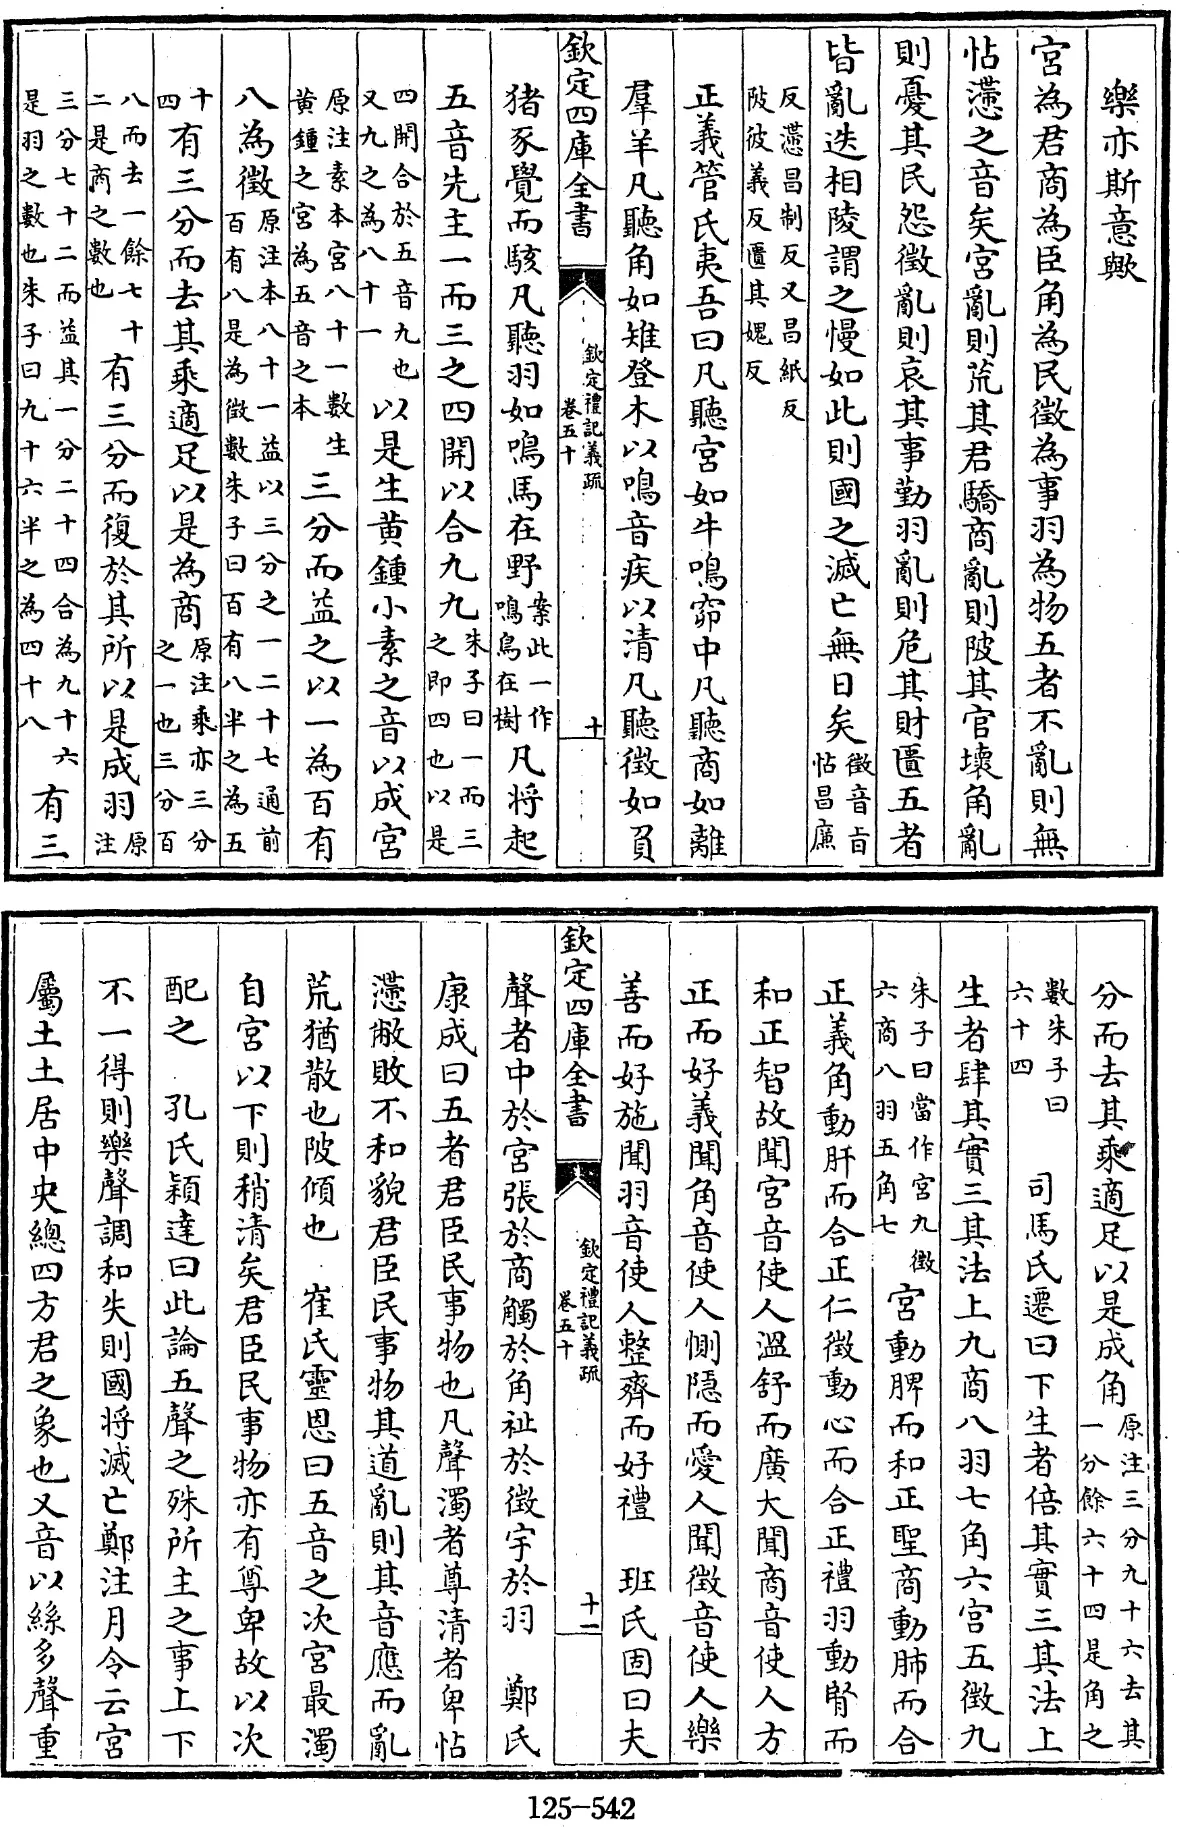 樂亦斯意歟
宮為君商為臣角為民徵為事羽為物五者不亂則無
怗懘之音矣宮亂則荒其君驕商亂則陂其官壞角亂
則憂其民怨徵亂則哀其事勤羽亂則危其財匱五者
皆亂迭相陵謂之慢如此則國之滅亡無日矣徵音旨怗昌廉
反懘昌制反又昌紙反
陂彼義反匱其媿反
正義管氏夷吾曰凡聽宮如牛鳴窌中凡聽商如離
羣羊凡聽角如雉登木以鳴音疾以清凡聽徵如負
欽定四庫全書 欽定禮記義疏 卷五十 十
猪豕覺而駭凡聽羽如鳴馬在野案此一作鳴鳥在樹凡將起
五音先主一而三之四開以合九九朱子曰一而三之即四也以是
四開合於五音九也又九之為八十一以是生黃鍾小素之音以成宮
原注素本宮八十一數生黃鍾之宮為五音之本三分而益之以一為百有
八為徵原注本八十一益以三分之一二十七通前百有八是為徵數朱子曰百有八半之為五
十四有三分而去其乘適足以是為商原注乘亦三分之一也三分百
八而去一餘七十二是商之數也有三分而復於其所以是成羽原注
三分七十二而益其一分二十四合為九十六是羽之數也朱子曰九十六半之為四十八有三
分而去其乘適足以是成角原注三分九十六去其一分餘六十四是角之
數朱子曰六十四 司馬氏遷曰下生者倍其實三其法上
生者肆其實三其法上九商八羽七角六宮五徵九
朱子曰當作宮九徵六商八羽五角七宮動脾而和正聖商動肺而合
正義角動肝而合正仁徵動心而合正禮羽動腎而
和正智故聞宮音使人溫舒而廣大聞商音使人方
正而好義聞角音使人惻隱而愛人聞徵音使人樂
善而好施聞羽音使人整齊而好禮 班氏固曰夫
欽定四庫全書 欽定禮記義疏 卷五十 十一
聲者中於宮張於商觸於角祉於徵宇於羽 鄭氏
康成曰五者君臣民事物也凡聲濁者尊清者卑怗
懘敝敗不和貌君臣民事物其道亂則其音應而亂
荒猶散也陂傾也 崔氏靈恩曰五音之次宮最濁
自宮以下則稍清矣君臣民事物亦有尊卑故以次
配之 孔氏穎達曰此論五聲之殊所主之事上下
不一得則樂聲調和失則國將滅亡鄭注月令云宮
屬土土居中央總四方君之象也又音以絲多聲重
125-542